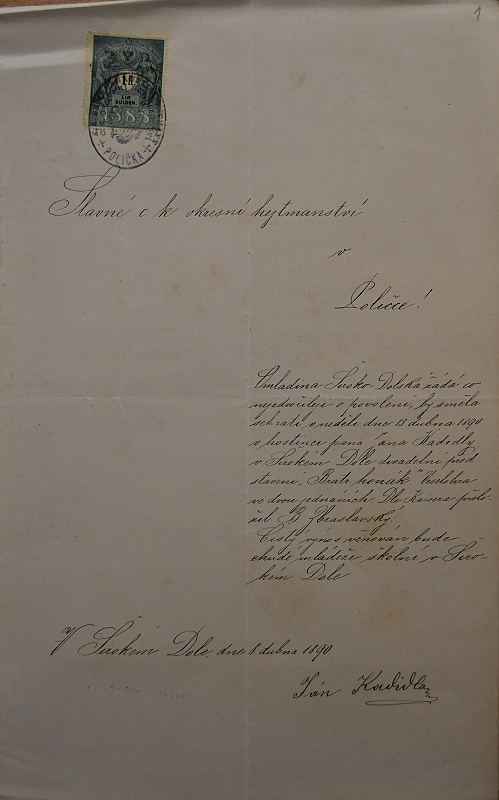 1
1 fl
EIN
GULDEN.
1888
POLIČKA
Slavné c k okresní hejtmanství
v
Poličce!
Omladina Široko-Dolská žádá co
nejzdvořileji o povolení, by směla
sehráti v neděli dne 13 dubna 1890
v hostinci pana Jana Kadidly
v Širokém Dole divadelní před
stavení „Bratr honák" Veselohra
ve dvou jednáních Dle Kaisera přelo
žil B Zbraslavský.
Čistý výnos věnován bude
chudé mládeži školní v Širo-
kém Dole
V Širokém Dole, dne 8 dubna 1890.
Ján Kadidlo